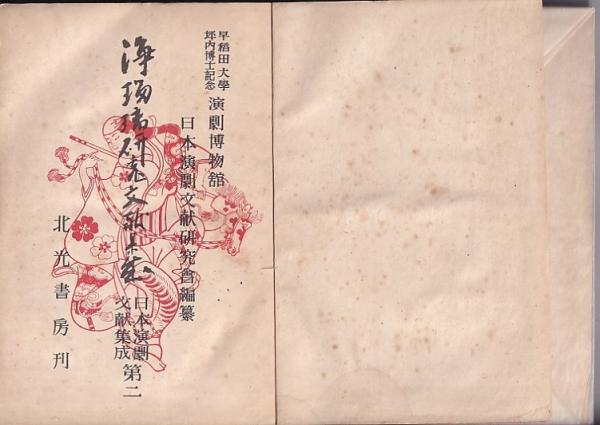 早稲田大學
坪内博士記念
演劇博物館
日本演劇文献研究會編纂
浄瑠璃研究文献集成
日本演劇
文献集成
第二
北光書房刊